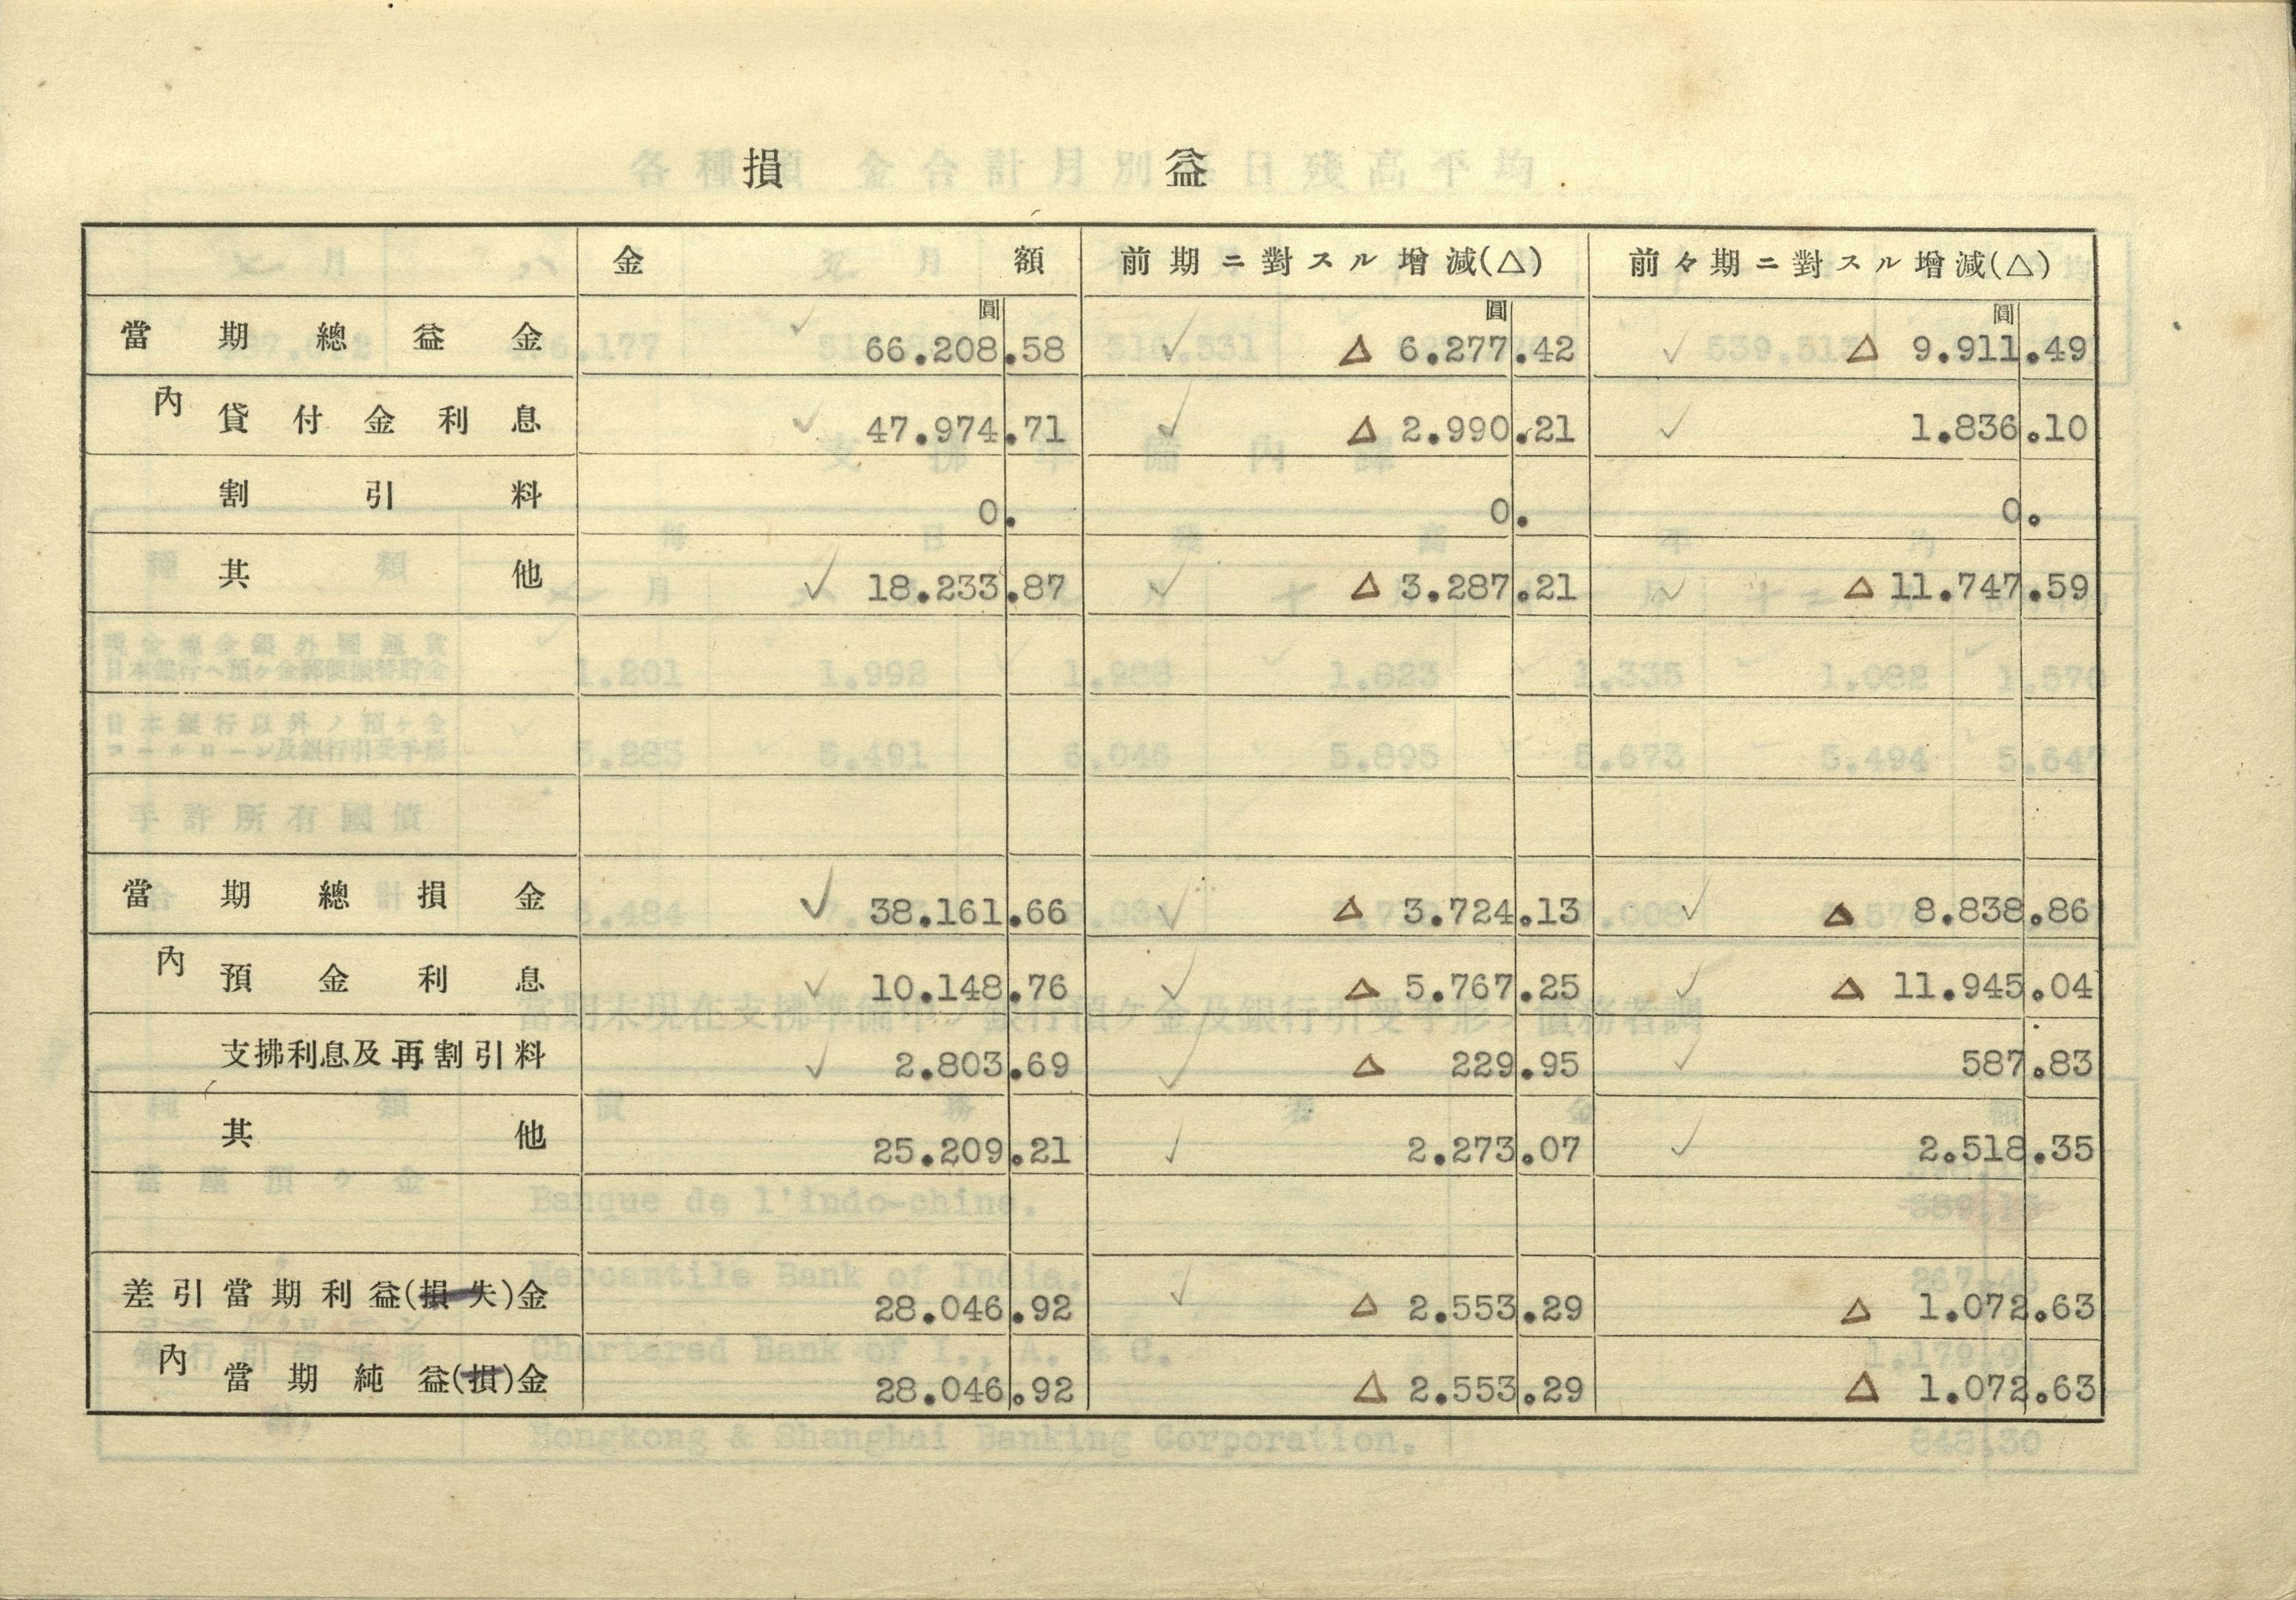 損 益
金 額 前期ニ對スル增減(△) 前々期ニ對スル增減(△)
圓 圓 圓
當期總益金 66.208.58 △ 6.277.42 △ 9.911.49
內 貸付金利息 47.974.71 △ 2.990.21 1.836.10
割引料 0. 0. 0.
其他 18.233.87 △ 3.287.21 △ 11.747.59
當期總損金 38.161.66 △ 3.724.13 △ 8.838.86
內 預金利息 10.148.76 △ 5.767.25 △ 11.945.04
支拂利息及再割引料 2.803.69 △ 229.95 587.83
其他 25.209.21 2.273.07 2.518.35
差引當期利益(損失)金 28.046.92 △ 2.553.29 △ 1.072.63
內 當期純益(損)金 28.046.92 △ 2.553.29 △ 1.072.63